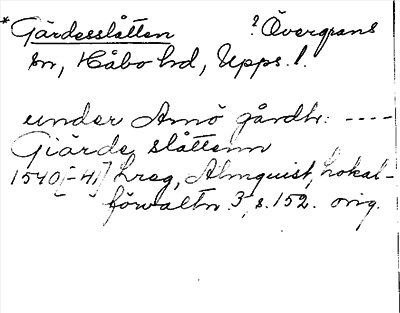 * Gärdesslåtten ? Övergrans
sn, Håbo hd, Upps. l.
under Arnö gårdh: ----
Giärde slåttenn
1540[-41] Lreg, Almquist, Lokal-
förvaltn. 3, s. 152. orig.